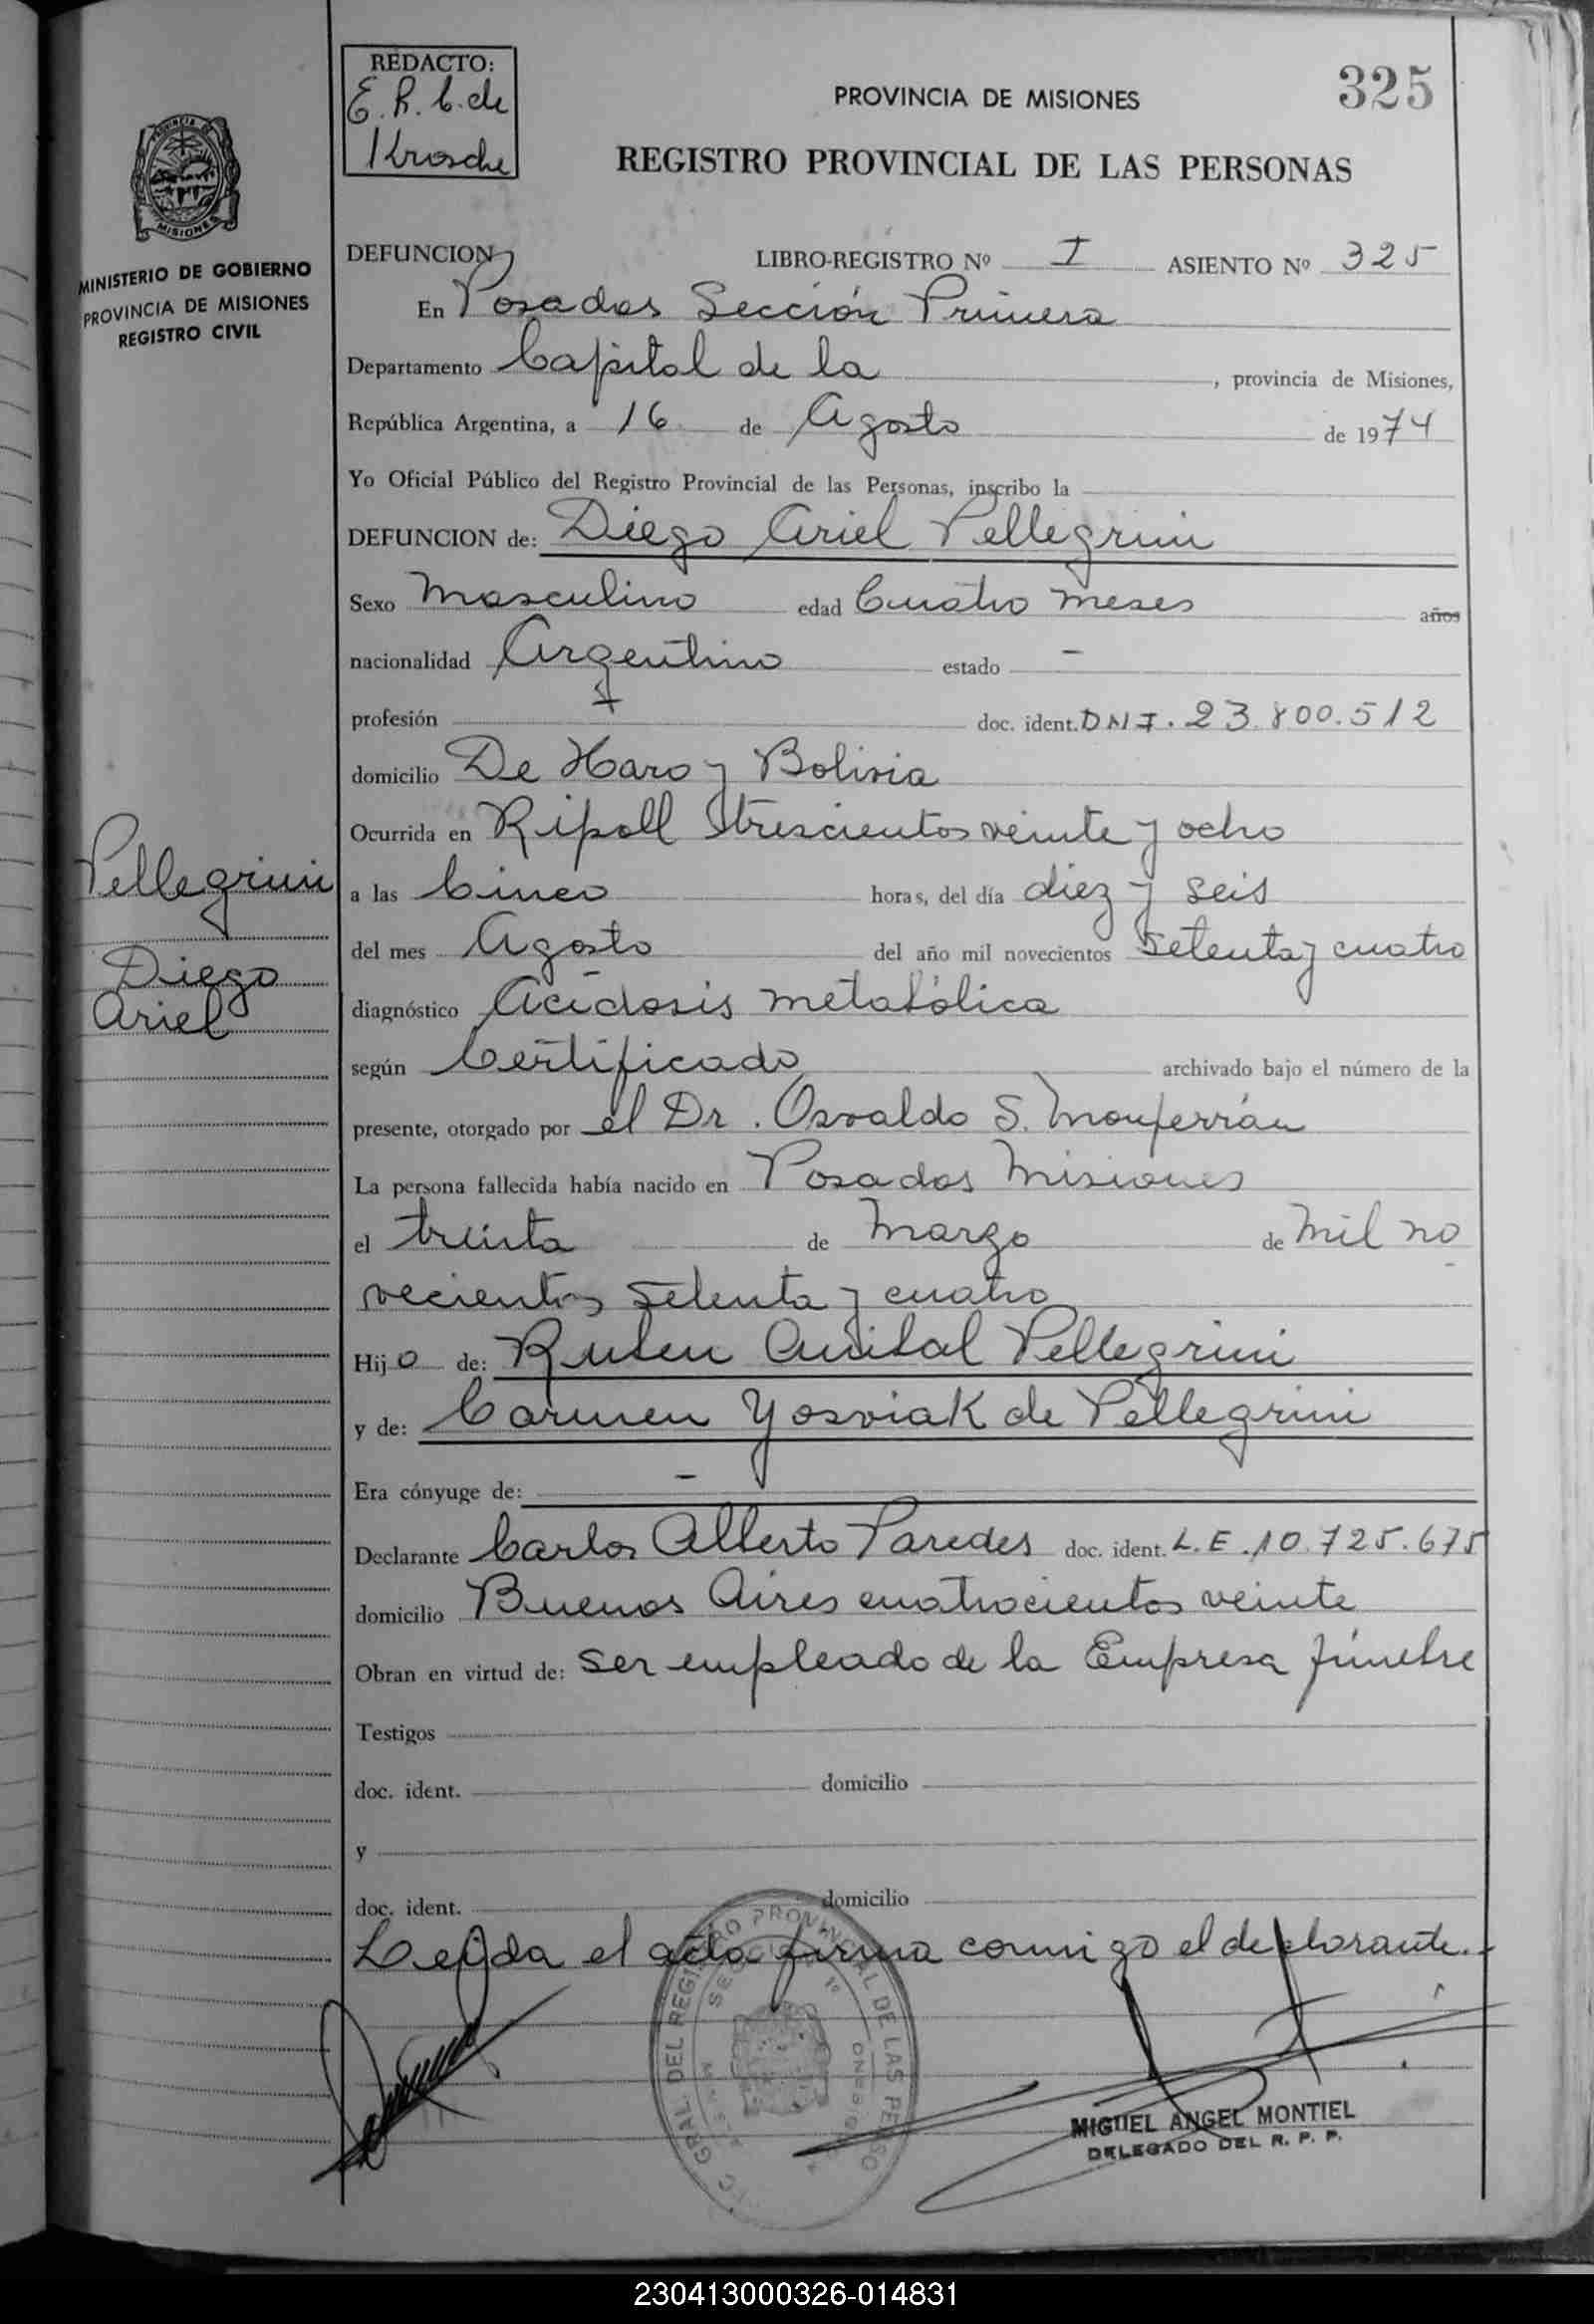 325
REDACTO:
E. R. C. de
Krosche
PROVINCIA DE MISIONES
REGISTRO PROVINCIAL DE LAS PERSONAS
MISIONES
MINISTERIO DE GOBIERNO
PROVINCIA DE MISIONES
REGISTRO CIVIL
DEFUNCION LIBRO-REGISTRO Nº I ASIENTO Nº 325
En Posadas Sección Primera
Departamento Capital de la , provincia de Misiones,
República Argentina, a 16 de Agosto de 1974
Yo Oficial Público del Registro Provincial de las Personas, inscribo la
DEFUNCION de: Diego Ariel Pellegrini
Sexo Masculino edad Cuatro meses años
nacionalidad Argentino estado -
profesión doc. ident. DNI. 23.800.512
domicilio De Haro y Bolivia
Ocurrida en Ripoll trescientos veinte y ocho
Pellegrini
Diego
Ariel
a las Cinco horas, del día diez y seis
del mes Agosto del año mil novecientos setenta y cuatro
diagnóstico Acidosis metabólica
según Certificado archivado bajo el número de la
presente, otorgado por el Dr. Osvaldo S. Monferrán
La persona fallecida había nacido en Posadas Misiones
el treinta de Marzo de mil no
vecientos setenta y cuatro
Hijo de: Ruben Anibal Pellegrini
y de: Carmen Yosviak de Pellegrini
Era cónyuge de: -
Declarante Carlos Alberto Paredes doc. ident. L.E. 10.725.675
domicilio Buenos Aires cuatrocientos veinte
Obran en virtud de: ser empleado de la Empresa fúnebre
Testigos
doc. ident. domicilio
y
doc. ident. domicilio
Leída el acta firma conmigo el declarante.
MIGUEL ANGEL MONTIEL
DELEGADO DEL R. P. P.
230413000326-014831